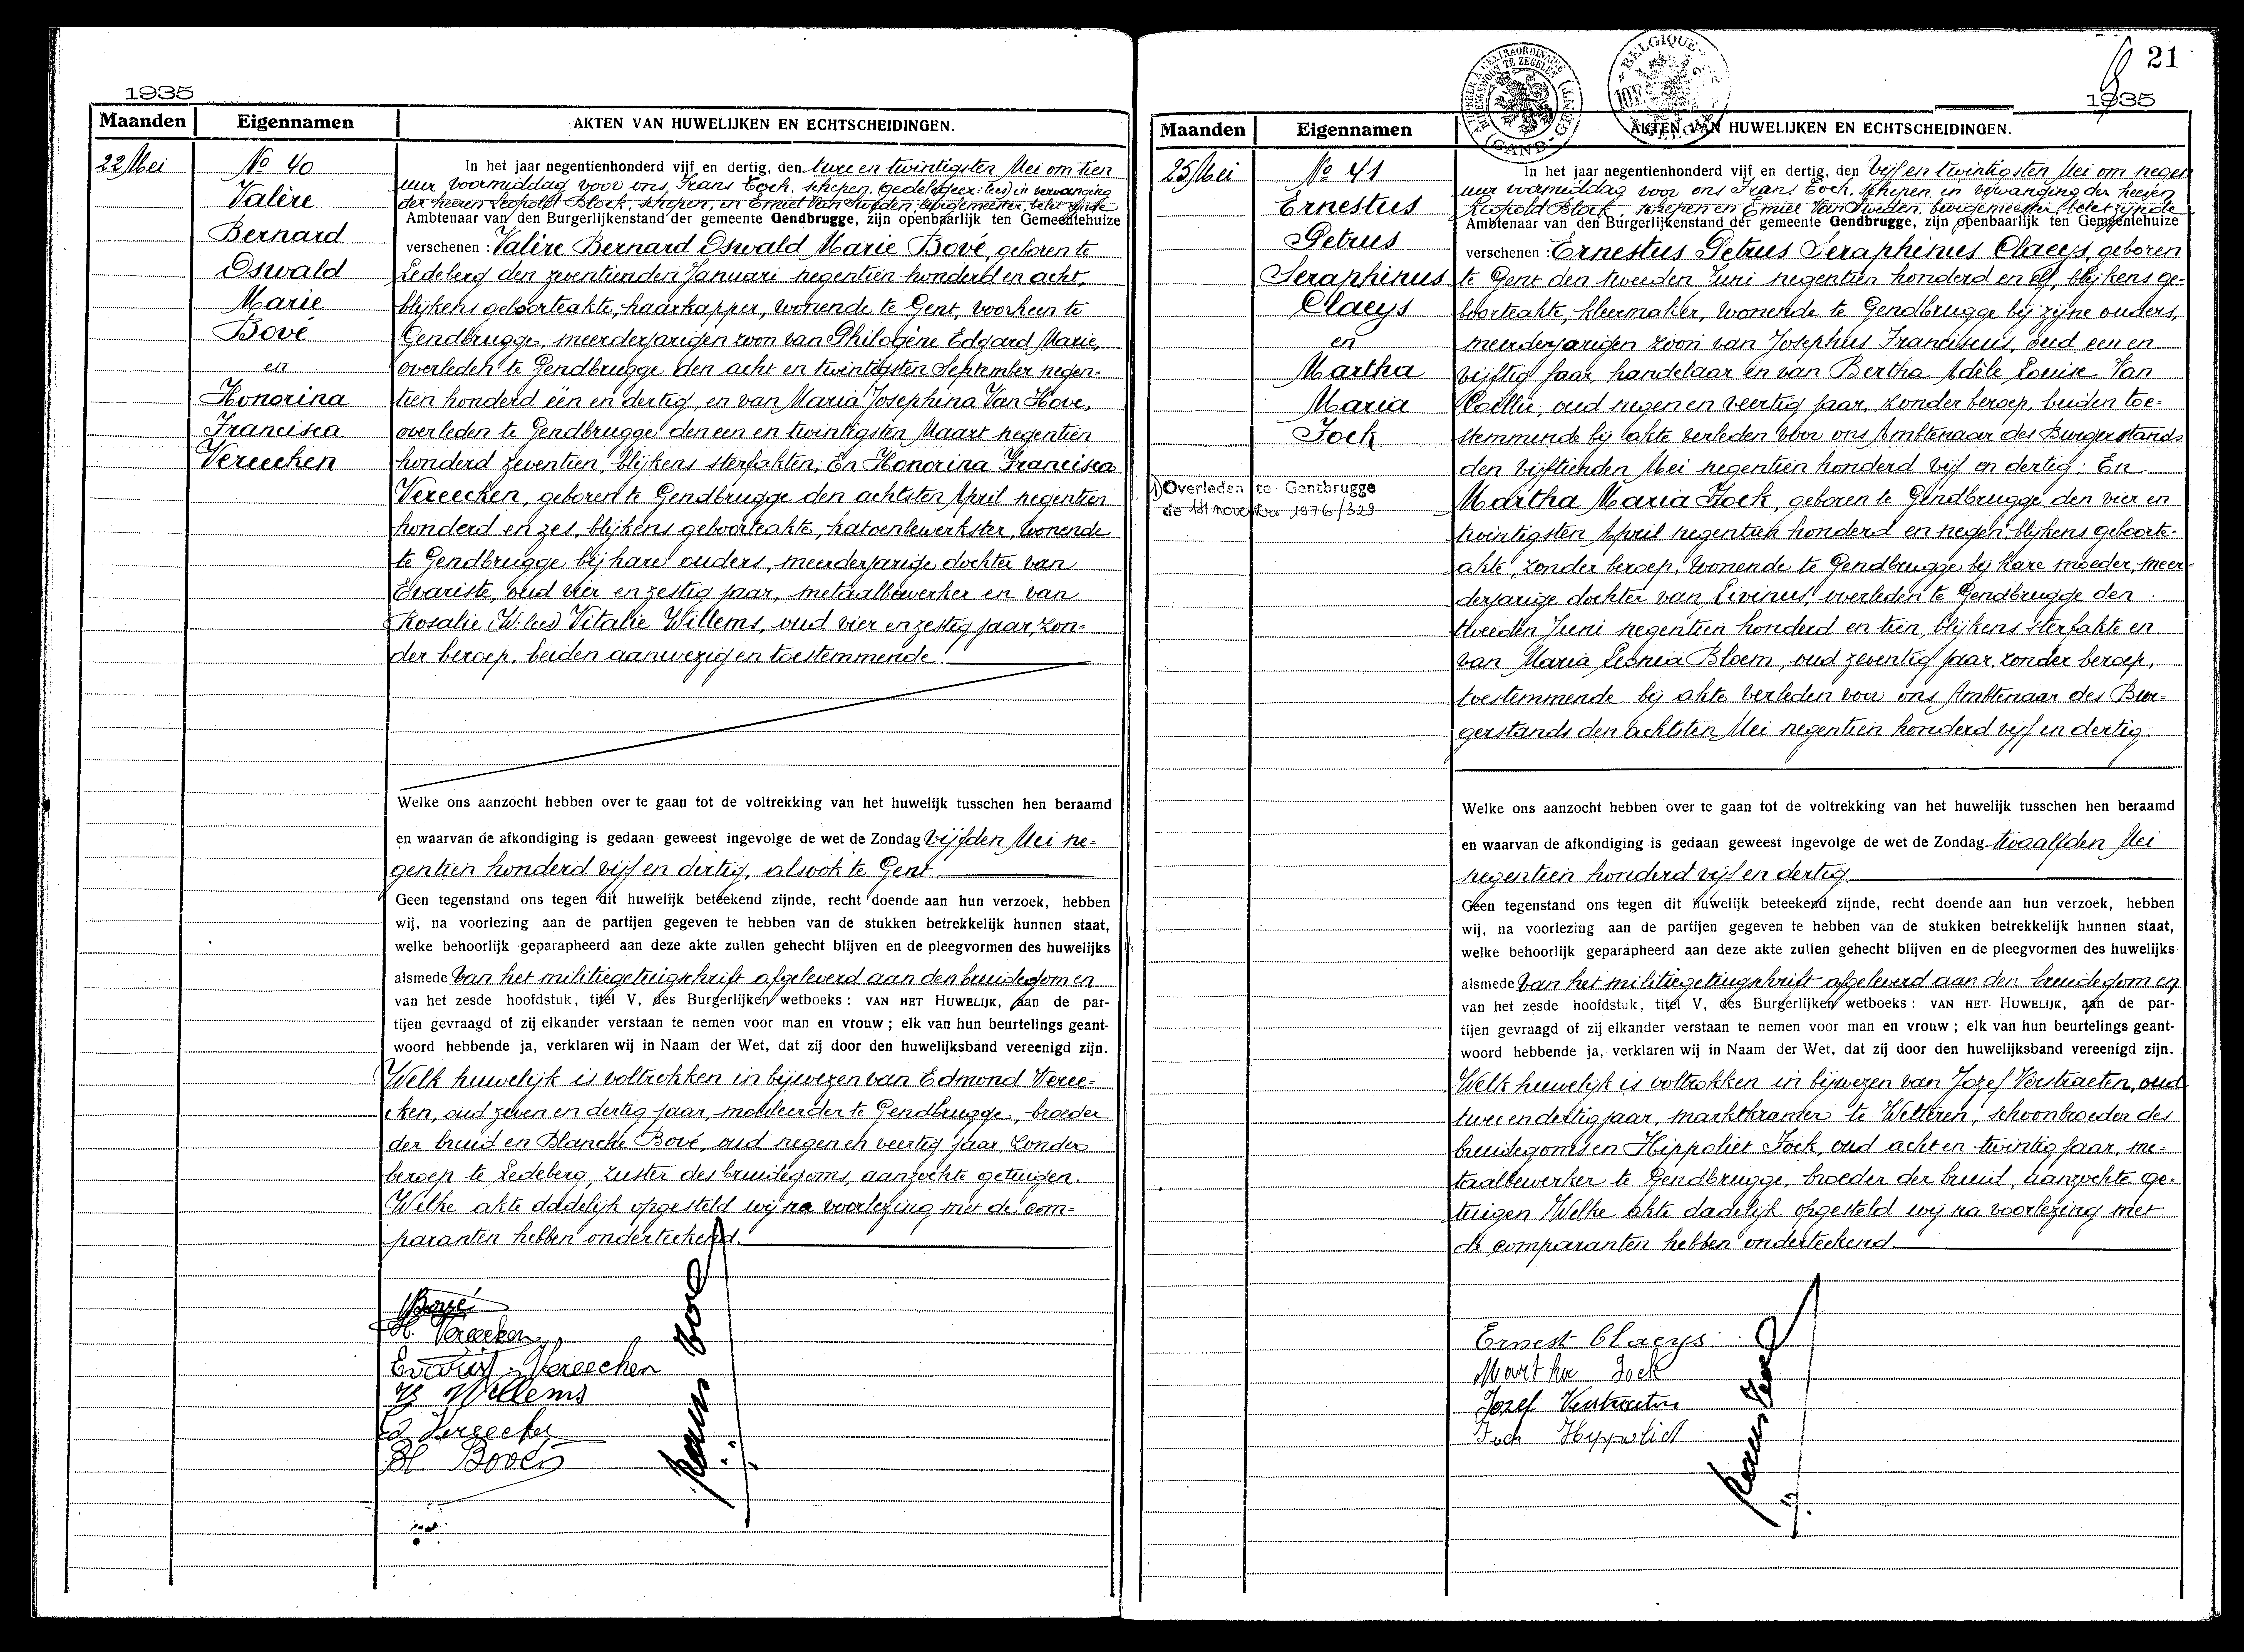 1935
Maanden Eigennamen AKTEN VAN HUWELIJKEN EN ECHTSCHEIDINGEN.
22 Mei
No 40
Valère
Bernard
Oswald
Marie
Bové
en
Honorina
Francisca
Vereecken
In het jaar negentienhonderd vijf en dertig, den twee en twintigsten Mei om tien
uur voormiddag voor ons, Frans Tock, schepen, in vervanging
der heeren Leopold Block, schepen, en Emiel Van Sweden, burgemeester, belet zijnde
Ambtenaar van den Burgerlijkenstand der gemeente Gendbrugge, zijn openbaarlijk ten Gemeentehuize
verschenen : Valère Bernard Oswald Marie Bové, geboren te
Ledeberg den zeventienden Januari negentien honderd en acht,
blijkens geboorteakte, haarkapper, wonende te Gent, voorheen te
Gendbrugge, meerderjarigen zoon van Philogène Edgard Marie,
overleden te Gendbrugge den acht en twintigsten September negen=
tien honderd één en dertig, en van Maria Josephina Van Hove,
overleden te Gendbrugge den een en twintigsten Maart negentien
honderd zeventien, blijkens sterfakten; En Honorina Francisca
Vereecken, geboren te Gendbrugge den achtsten April negentien
honderd en zes, blijkens geboorteakte, katoenbewerkster, wonende
te Gendbrugge bij hare ouders, meerderjarige dochter van
Evariste, oud vier en zestig jaar, metaalbewerker en van
Rosalie (W: lees) Vitalie Willems, oud vier en zestig jaar, zon=
der beroep, beiden aanwezig en toestemmende.
Welke ons aanzocht hebben over te gaan tot de voltrekking van het huwelijk tusschen hen beraamd
en waarvan de afkondiging is gedaan geweest ingevolge de wet de Zondag vijfden Mei ne=
gentien honderd vijf en dertig, alsook te Gent
Geen tegenstand ons tegen dit huwelijk beteekend zijnde, recht doende aan hun verzoek, hebben
wij, na voorlezing aan de partijen gegeven te hebben van de stukken betrekkelijk hunnen staat,
welke behoorlijk geparapheerd aan deze akte zullen gehecht blijven en de pleegvormen des huwelijks
alsmede van het militiegetuigschrift afgeleverd aan den bruidegom en
van het zesde hoofdstuk, titel V, des Burgerlijken wetboeks : VAN HET HUWELIJK, aan de par-
tijen gevraagd of zij elkander verstaan te nemen voor man en vrouw ; elk van hun beurtelings geant-
woord hebbende ja, verklaren wij in Naam der Wet, dat zij door den huwelijksband vereenigd zijn.
Welk huwelijk is voltrokken in bijwezen van Edmond Veree=
cken, oud zeven en dertig jaar, mouleerder te Gendbrugge, broeder
der bruid en Blanche Bové, oud negen en veertig jaar, zonder
beroep te Ledeberg, zuster des bruidegoms, aanzochte getuigen.
Welke akte dadelijk opgesteld wij na voorlezing met de com=
paranten hebben onderteekend.
VBové
H. Vereecken
Evarist Vereecken
Willems
Ed Vereecken
Bl Bové
21
1935
BELGIQUE
10F
GAND - GENT
Maanden Eigennamen AKTEN VAN HUWELIJKEN EN ECHTSCHEIDINGEN.
25 Mei
No 41
Ernestus
Petrus
Seraphinus
Claeys
en
Martha
Maria
Fock
1) Overleden te Gentbrugge
de november 1976/329
In het jaar negentienhonderd vijf en dertig, den vijf en twintigsten Mei om negen
uur voormiddag voor ons Frans Tock, schepen, in vervanging der heeren
Leopold Block, schepen en Emiel Van Sweden, burgemeester, belet zijnde
Ambtenaar van den Burgerlijkenstand der gemeente Gendbrugge, zijn openbaarlijk ten Gemeentehuize
verschenen : Ernestus Petrus Seraphinus Claeys, geboren
te Gent den tweeden Juni negentien honderd en elf, blijkens ge=
boorteakte, kleermaker, wonende te Gendbrugge bij zijne ouders,
meerderjarigen zoon van Josephus Franciscus, oud een en
vijftig jaar, handelaar en van Bertha Adèle Louise Van
oud negen en veertig jaar, zonder beroep, beiden toe=
stemmende bij akte verleden voor ons Ambtenaar des Burgerstands
den vijftienden Mei negentien honderd vijf en dertig; En
Martha Maria Fock, geboren te Gendbrugge den vier en
twintigsten April negentien honderd en negen blijkens geboorte=
akte, zonder beroep, wonende te Gendbrugge bij hare moeder, meer=
derjarige dochter van Livinus, overleden te Gendbrugge den
tweeden Juni negentien honderd en tien, blijkens sterfakte en
van Maria Leonia Bloem, oud zeventig jaar, zonder beroep,
toestemmende bij akte verleden voor ons Ambtenaar des Bur=
gerstands den achtsten Mei negentien honderd vijf en dertig
Welke ons aanzocht hebben over te gaan tot de voltrekking van het huwelijk tusschen hen beraamd
en waarvan de afkondiging is gedaan geweest ingevolge de wet de Zondag twaalfden Mei
negentien honderd vijf en dertig
Geen tegenstand ons tegen dit huwelijk beteekend zijnde, recht doende aan hun verzoek, hebben
wij, na voorlezing aan de partijen gegeven te hebben van de stukken betrekkelijk hunnen staat,
welke behoorlijk geparapheerd aan deze akte zullen gehecht blijven en de pleegvormen des huwelijks
alsmede van het militiegetuigschrift afgeleverd aan den bruidegom en
van het zesde hoofdstuk, titel V, des Burgerlijken wetboeks : VAN HET HUWELIJK, aan de par-
tijen gevraagd of zij elkander verstaan te nemen voor man en vrouw ; elk van hun beurtelings geant-
woord hebbende ja, verklaren wij in Naam der Wet, dat zij door den huwelijksband vereenigd zijn.
Welk huwelijk is voltrokken in bijwezen van Jozef Verstraeten, oud
twee en dertig jaar, marktkramer te Wetteren, schoonbroeder des
bruidegoms en Hippoliet Fock, oud acht en twintig jaar, me=
taalbewerker te Gendbrugge, broeder der bruid, aanzochte ge=
tuigen. Welke akte dadelijk opgesteld wij na voorlezing met
de comparanten hebben onderteekend
Ernest Claeys.
Martha Fock
Jozef Verstraeten
Fock Hyppoliet